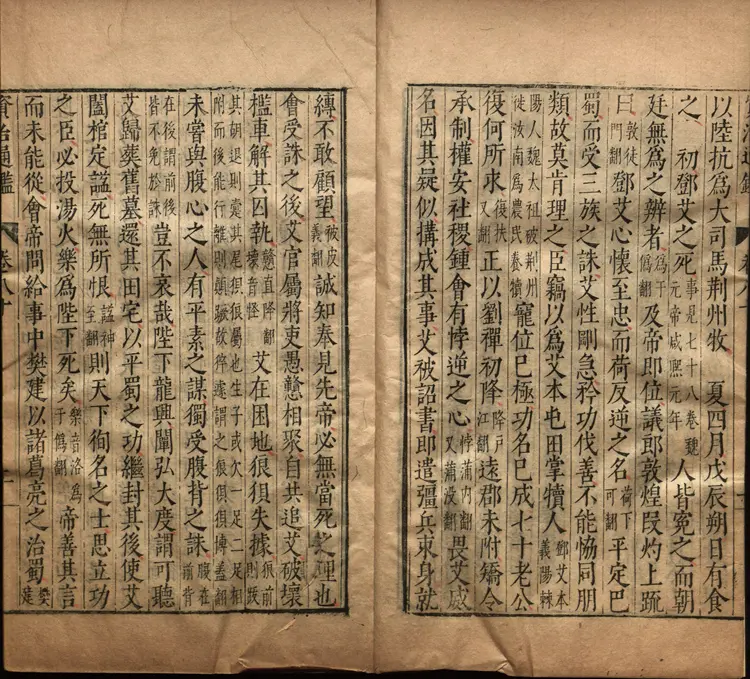 以陸抗爲大司馬荆州牧　夏四月戊辰朔日有食
之　初鄧艾之死事見七十八卷魏元帝咸熙元年人皆冤之而朝
廷無爲之辨者爲于僞翻及帝即位議郎敦煌段灼上䟽
曰敦徒門翻鄧艾心懷至忠而荷反逆之名荷下可翻平定巴
蜀而受三族之誅艾性剛急矜功伐善不能恊同朋
類故莫肯理之臣竊以爲艾本屯田掌犢人鄧艾本義陽棘
陽人魏太祖破荆州徙汝南爲農民養犢寵位已極功名已成七十老公
復何所求復扶又翻正以劉禪初降降戶江翻遠郡未附矯令
承制權安社稷鍾會有悖逆之心悖蒲内翻又蒲没翻畏艾威
名因其疑似構成其事艾被詔書即遣彊兵束身就
縛不敢顧望被皮義翻誠知奉見先帝必無當死之理也
會受誅之後艾官屬將吏愚戇相聚自共追艾破壞
檻車解其囚執戇直降翻壞音怪艾在困地狼狽失據狼前則跋
其胡退則疐其尾狽狼屬也生子或欠一足二足相附而後能行離則顚故猝遽謂之狼狽狽博蓋翻
未嘗與腹心之人有平素之謀獨受腹背之誅腹在前背
在後謂前後皆不免於誅豈不哀哉陛下龍興闡弘大度謂可聽
艾歸葬舊墓還其田宅以平蜀之功繼封其後使艾
闔棺定謚死無所恨謚神至翻則天下徇名之士思立功
之臣必投湯火樂爲陛下死矣樂音洛爲于僞翻帝善其言
而未能從會帝問給事中樊建以諸葛亮之治蜀樊建
資治通鑑　卷八十